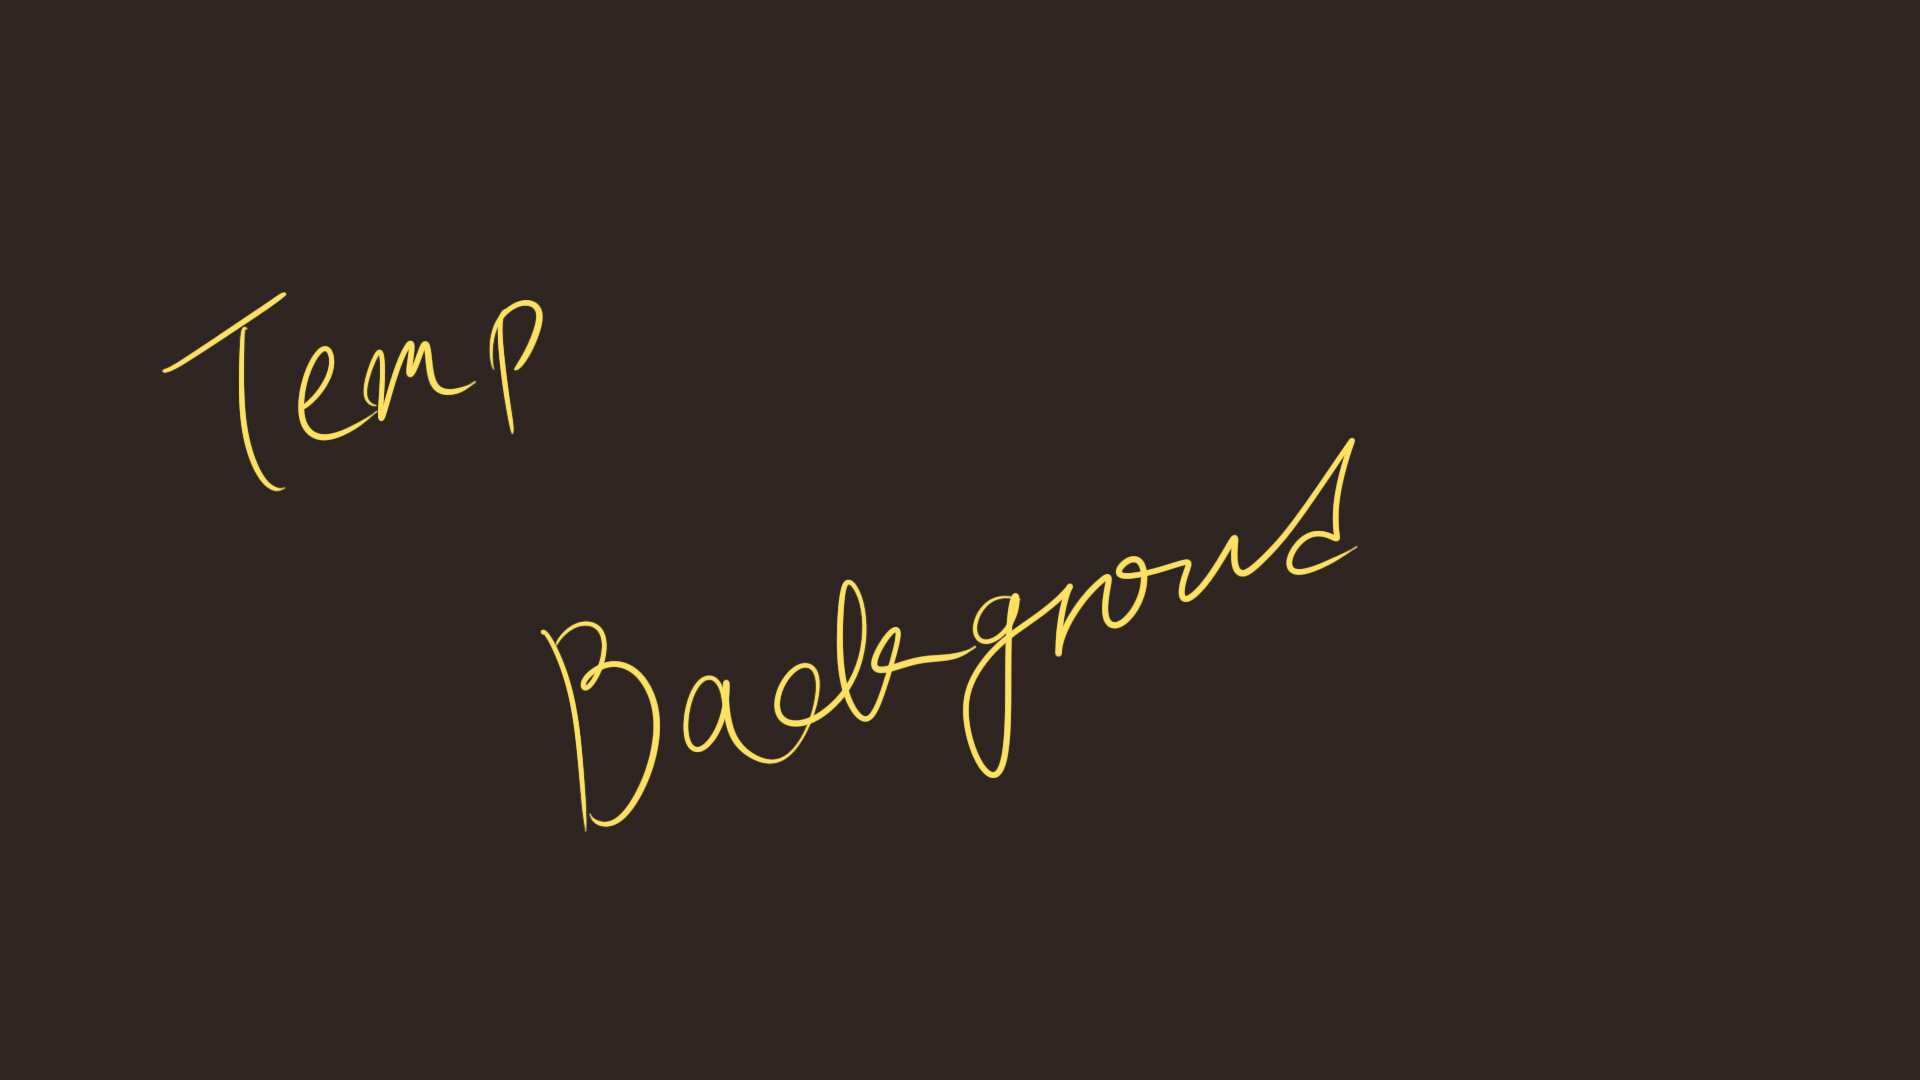 Temp
Background